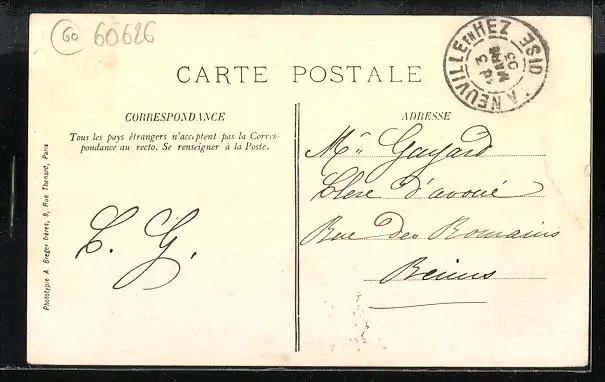 60 60626
LA NEUVILLE EN HEZ OISE
3 MARS 03
CARTE POSTALE
CORRESPONDANCE
Tous les pays étrangers n'acceptent pas la Corres-
pondance au recto. Se renseigner à la Poste.
L. G.
Phototypie A. Breger frères, 9, Rue Thénard, Paris
ADRESSE
Mr Gayard
Clerc d'avoué
Rue des Romains
Reims